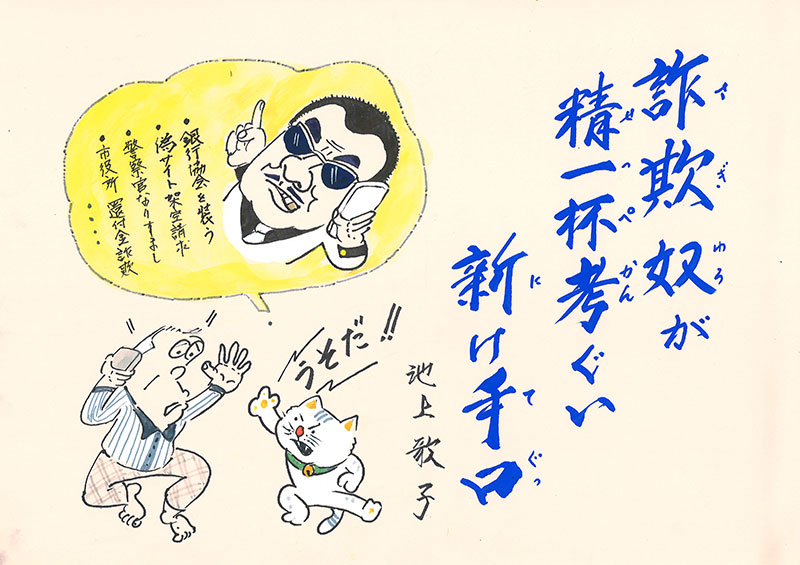 詐欺奴が
さぎわろ
精一杯考ぐい
せっぺかん
新け手口
にてぐっ
池上歌子
・銀行協会を装う
・偽サイト架空請求
・警察官なりすまし
・市役所 還付金詐欺
・・・・
うそだ!!